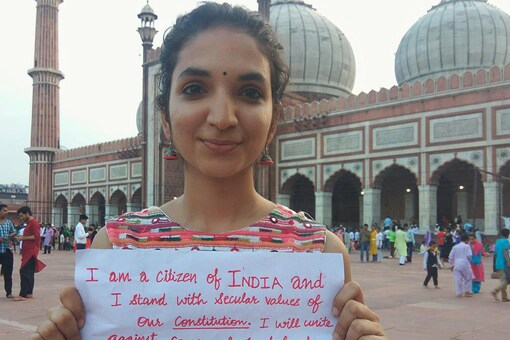 I am a citizen of INDIA and
I stand with secular values of
our Constitution. I will write
against